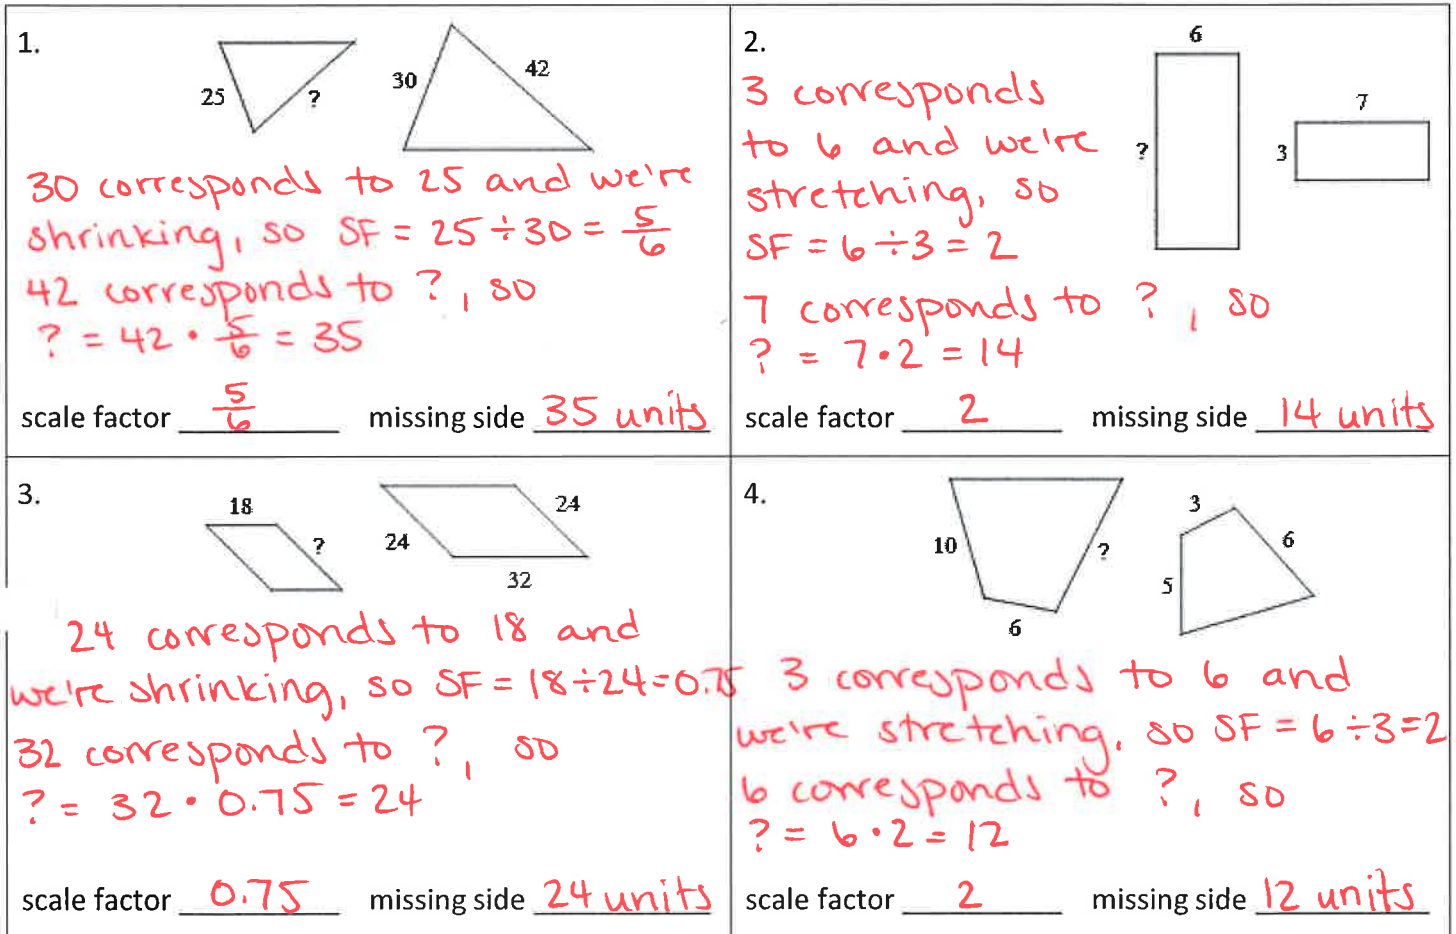 1.
25
?
30
42
30 corresponds to 25 and we're
shrinking, so SF = 25 ÷ 30 = 5/6
42 corresponds to ?, so
? = 42 • 5/6 = 35
scale factor 5/6 missing side 35 units
2.
6
?
7
3
3 corresponds
to 6 and we're
stretching, so
SF = 6 ÷ 3 = 2
7 corresponds to ?, so
? = 7 • 2 = 14
scale factor 2 missing side 14 units
3.
18
?
24
24
32
24 corresponds to 18 and
we're shrinking, so SF = 18 ÷ 24 = 0.75
32 corresponds to ?, so
? = 32 • 0.75 = 24
scale factor 0.75 missing side 24 units
4.
10
?
6
3
6
5
3 corresponds to 6 and
we're stretching, so SF = 6 ÷ 3 = 2
6 corresponds to ?, so
? = 6 • 2 = 12
scale factor 2 missing side 12 units